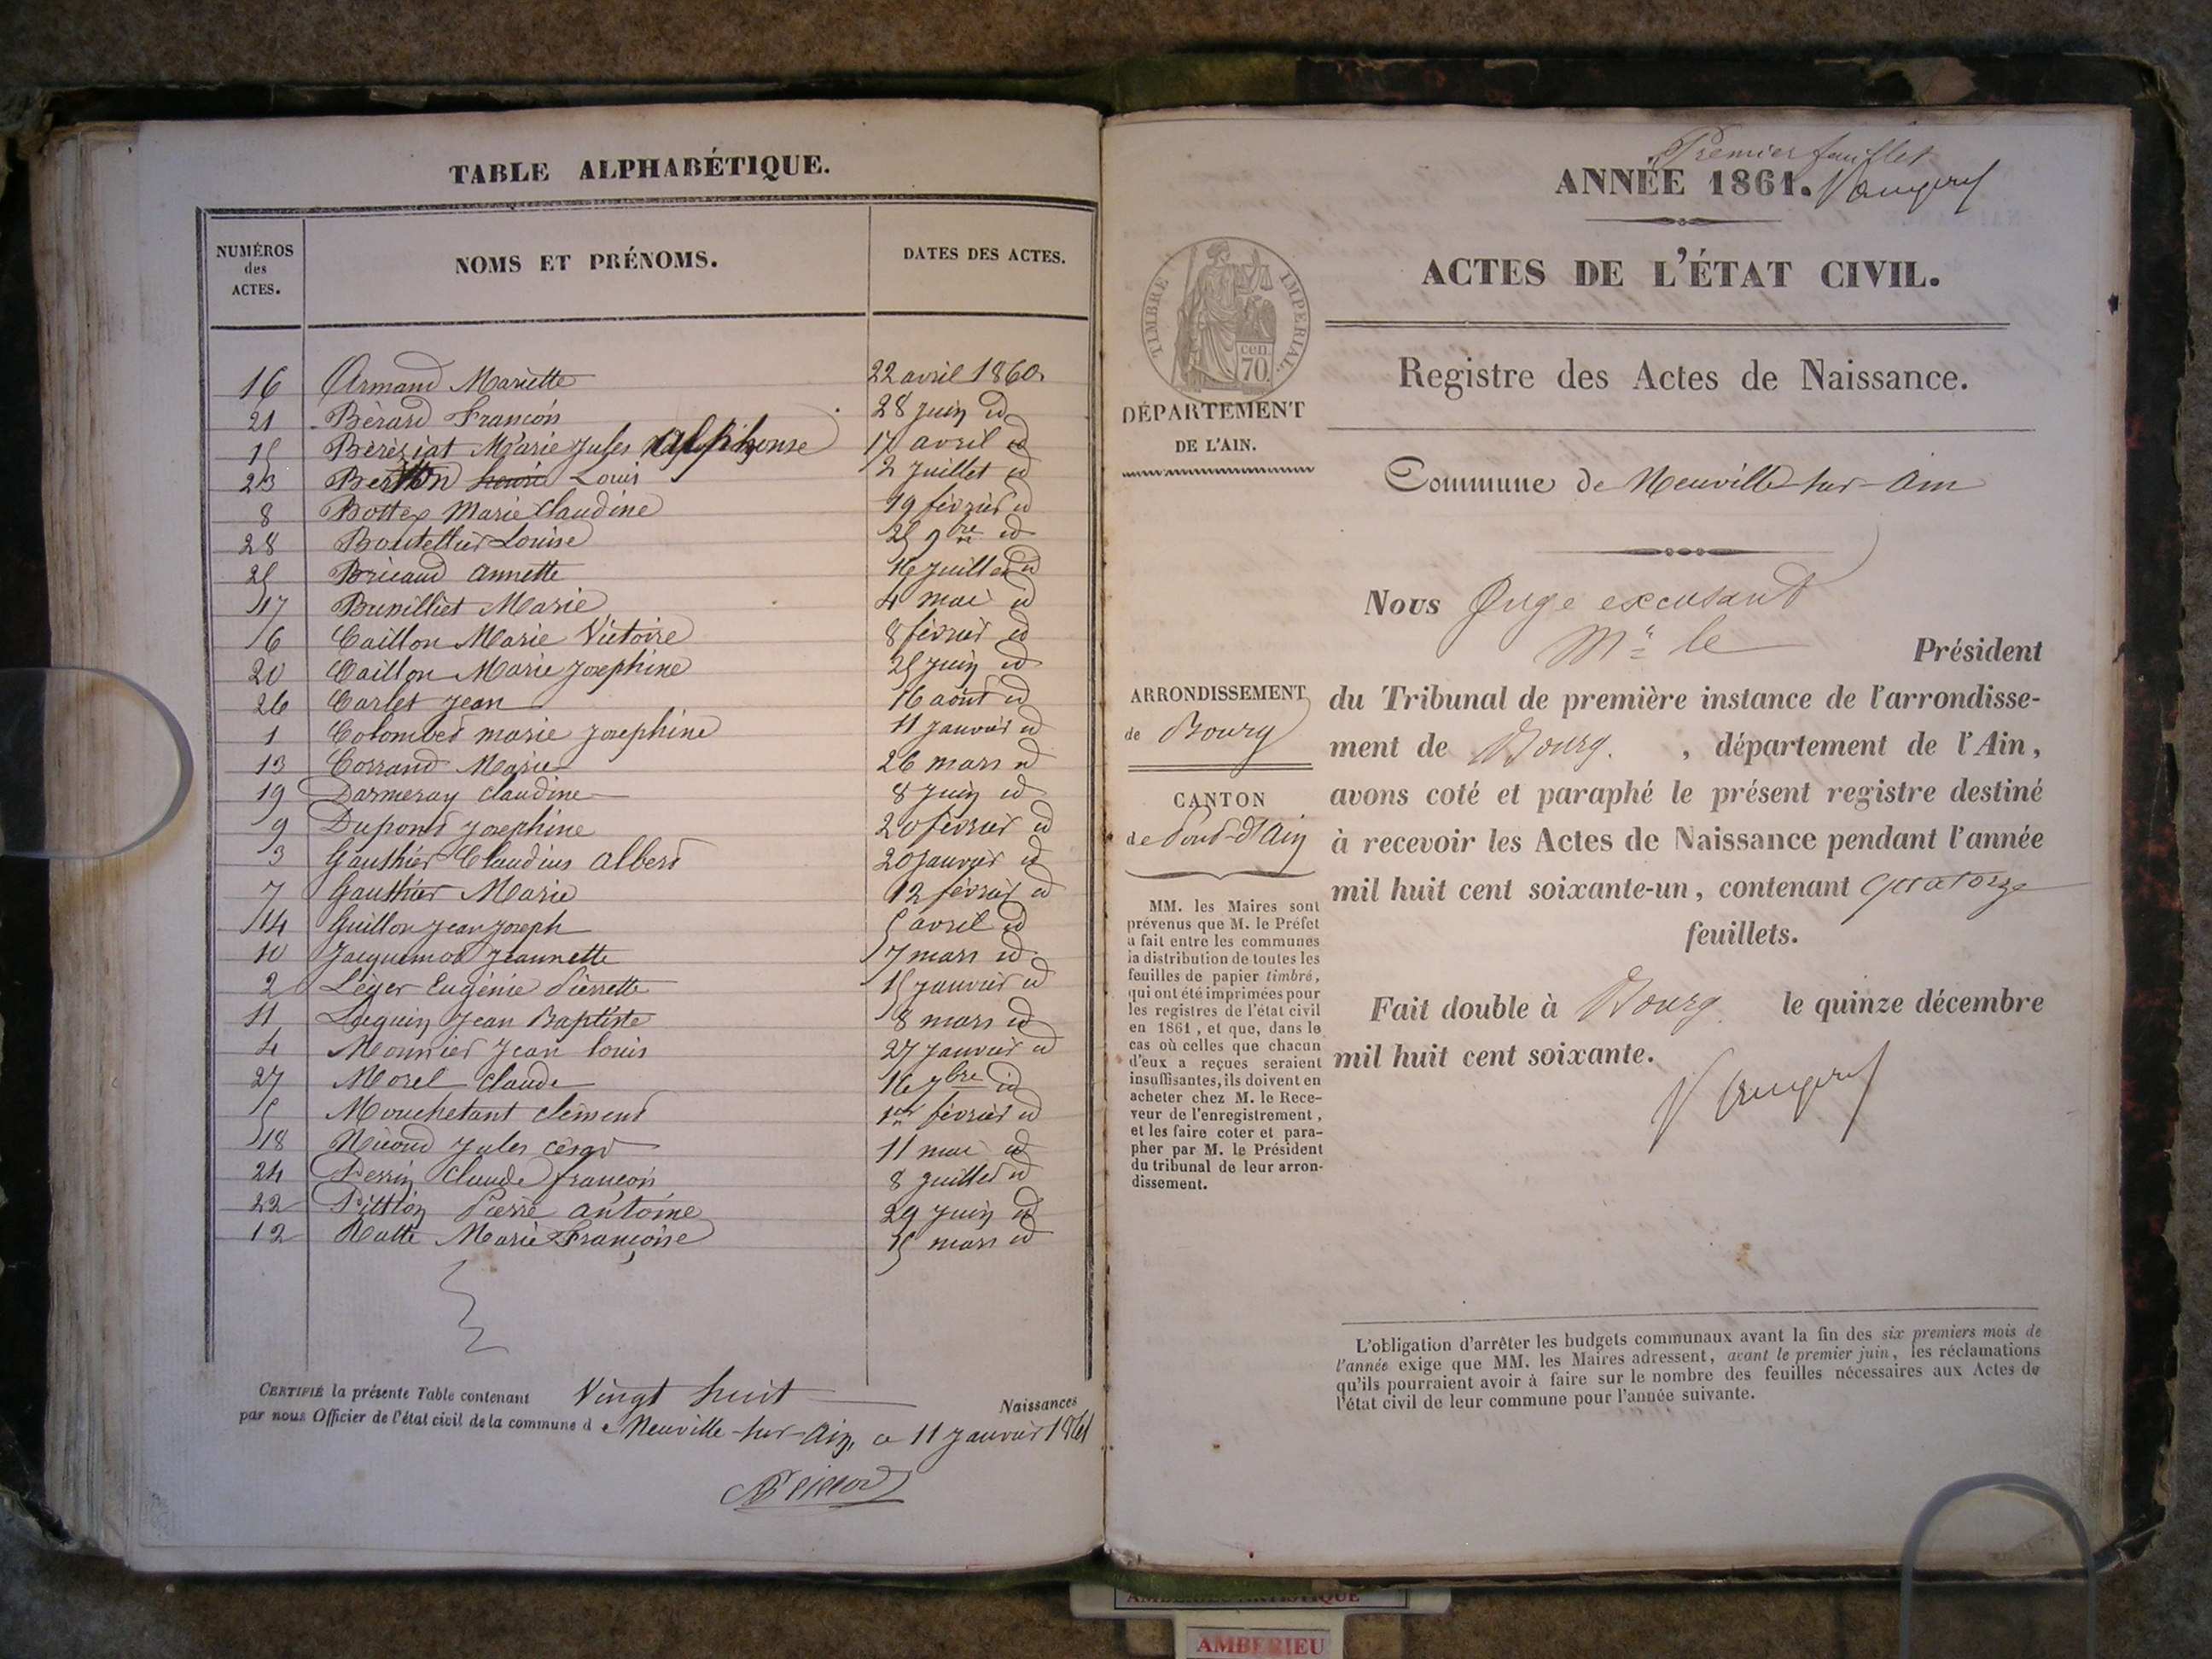 TABLE ALPHABÉTIQUE.
NUMÉROS des ACTES.
NOMS ET PRÉNOMS.
DATES DES ACTES.
16 Armand Mariette 22 avril 1860
21 Bérard François 28 juin id
15 Béréziat Marie Jules Alphonse 17 avril id
23 Berthon Louis 2 juillet id
8 Bottex Marie Claudine 19 février id
28 Boutellier Louise 25 9bre id
25 Bricaud Annette 16 juillet id
17 Marie 4 mai id
6 Caillon Marie Victoire 8 février id
20 Caillon Marie Josephine 25 juin id
26 Carlet Jean 16 août id
1 Colomber marie Josephine 11 janvier id
13 Corrand Marie 26 mars id
19 Darmeray Claudine 8 juin id
9 Dupont Josephine 20 février id
3 Gauthier Claudius Albert 20 janvier id
7 Gauthier Marie 12 février id
14 Guillon Jean Joseph 5 avril id
10 Jacquemod Jeannette 7 mars id
2 Léger Eugénie Pierrette 15 janvier id
11 Jean Baptiste 8 mars id
4 Monnier Jean louis 27 janvier id
27 Morel Claude 16 7bre id
5 Mouchetant Clément 1er février id
18 Nicoud Jules César 11 mai id
24 Perrin Claude françois 8 juillet id
22 Pittion Pierre antoine 29 juin id
12 Ratte Marie Françoise 15 mars id
CERTIFIÉ la présente Table contenant Vingt huit Naissances
par nous Officier de l'état civil de la commune de Neuville-sur-Ain, ce 11 Janvier 1861
Premier feuillet
ANNÉE 1861.
ACTES DE L'ÉTAT CIVIL.
TIMBRE IMPERIAL.
cen. 70.
Registre des Actes de Naissance.
DÉPARTEMENT
DE L'AIN.
Commune de Neuville-sur-Ain
Nous Juge excusant
Mr le Président
du Tribunal de première instance de l'arrondisse-
ment de Bourg. , département de l'Ain,
avons coté et paraphé le présent registre destiné
à recevoir les Actes de Naissance pendant l'année
mil huit cent soixante-un, contenant quatorze
feuillets.
Fait double à Bourg le quinze décembre
mil huit cent soixante.
ARRONDISSEMENT
de Bourg
CANTON
de Pont-d'Ain
MM. les Maires sont
prévenus que M. le Préfet
a fait entre les communes
la distribution de toutes les
feuilles de papier timbré,
qui ont été imprimées pour
les registres de l'état civil
en 1861, et que, dans le
cas où celles que chacun
d'eux a reçues seraient
insuffisantes, ils doivent en
acheter chez M. le Rece-
veur de l'enregistrement,
et les faire coter et para-
pher par M. le Président
du tribunal de leur arron-
dissement.
L'obligation d'arrêter les budgets communaux avant la fin des six premiers mois de
l'année exige que MM. les Maires adressent, avant le premier juin, les réclamations
qu'ils pourraient avoir à faire sur le nombre des feuilles nécessaires aux Actes de
l'état civil de leur commune pour l'année suivante.
AMBERIEU